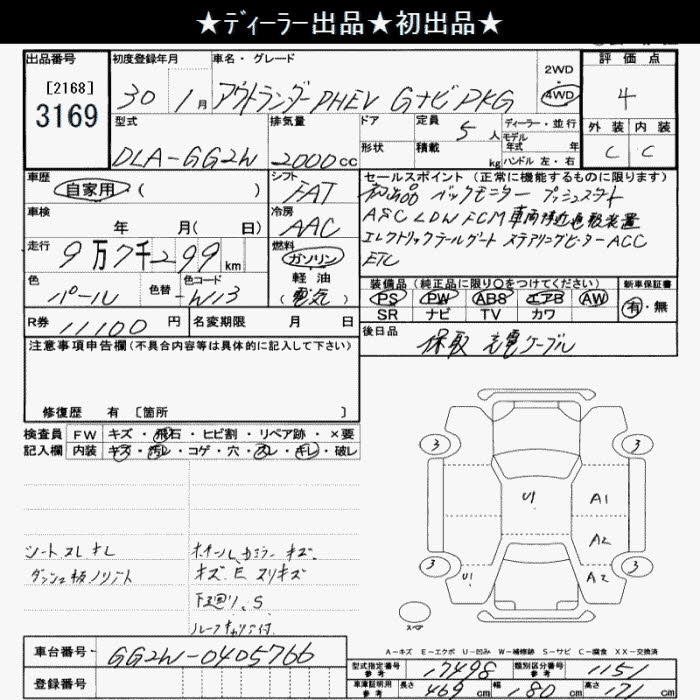 ★ディーラー出品★初出品★
出品番号
[2168]
3169
初度登録年月
30年 1月
車名・グレード
アウトランダーPHEV GナビPKG
2WD
4WD
評価点
4
外装 内装
C C
型式
DLA-GG2W
排気量
2000cc
ドア
形状
定員 5人
積載 kg
ディーラー・並行
モデル年式 年
ハンドル 左・右
車歴
自家用 ( )
シフト
FAT
セールスポイント (正常に機能するものに限ります)
初出品 バックモニター プッシュスタート
ASC LDW FCM 車両接近通報装置
エレクトリックテールゲート ステアリングヒーター ACC
ETC
車検
年 月( 日)
冷房
AAC
走行
9万7千299km
燃料
ガソリン
軽油
(電気)
色
パール
色替
色コード
W13
装備品 (純正品に限り○をつけてください)
PS PW ABS エアB AW
SR ナビ TV カワ
新車保証書
有・無
R券 11100円
名変期限 月 日
後日品
保取 充電ケーブル
注意事項申告欄 (不具合内容等は具体的に記入して下さい)
修復歴 有 [箇所 ]
検査員記入欄
FW キズ・飛石・ヒビ割・リペア跡・×要
内装 キズ・汚レ・コゲ・穴・スレ・キレ・破レ
シートスレキレ
ダッシュ板ノリアト
ホイールカラーキズ
キズ E スリキズ
下回り、S
ルーフキャリア付
3 3
U1 A1
A2
3 3
U1 A2
スペア
A-キズ E-エクボ U-凹み W-補修跡 S-サビ C-腐食 XX-交換済
車台番号 GG2W-0405766
登録番号
型式指定番号 参考 17498
類別区分番号 参考 1151
車庫証明用 参考 長さ 469cm 幅 180cm 高さ 171cm